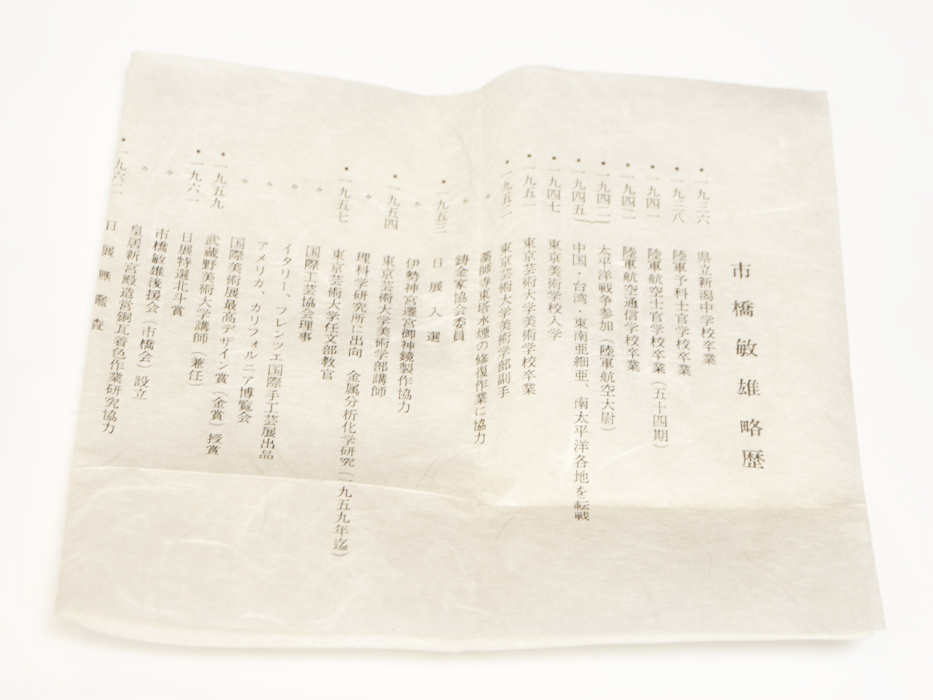 市橋敏雄略歴
・一九三六 県立新潟中学校卒業
・一九三八 陸軍予科士官学校卒業
・一九四一 陸軍航空士官学校卒業（五十四期）
・一九四二 陸軍航空通信学校卒業
・一九四二 太平洋戦争参加（陸軍航空大尉）
・一九四五 中国・台湾・東南亜細亜、南太平洋各地を転戦
・一九四七 東京美術学校入学
・一九五一 東京芸術大学美術学校卒業
・一九五二 東京芸術大学美術学部副手
〃 薬師寺東塔水煙の修復作業に協力
〃 鋳金家協会委員
・一九五三 日展入選
〃 伊勢神宮遷宮御神鏡製作協力
・一九五四 東京芸術大学美術学部講師
〃 理科学研究所に出向 金属分析化学研究（一九五九年迄）
・一九五七 東京芸術大学任文部教官
〃 国際工芸協会理事
〃 イタリー、フレンツェ国際手工芸展出品
〃 アメリカ、カリフォルニア博覧会
〃 国際美術展最高デザイン賞（金賞）授賞
・一九五九 武蔵野美術大学講師（兼任）
・一九六一 日展特選北斗賞
〃 市橋敏雄後援会（市橋会）設立
〃 皇居新宮殿造営銅瓦着色作業研究協力
・一九六二 日展無鑑査